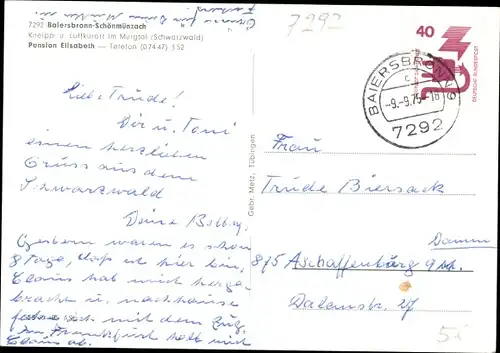 7292 Baiersbronn-Schönmünzach
Kneipp- u. Luftkurort im Murgtal (Schwarzwald)
Pension Elisabeth — Telefon (07447) 352
Liebe Trude!
Dir u. Toni
einen herzlichen
Gruss aus dem
Schwarzwald
Deine
Gestern waren es schon
8 Tage, daß ich hier bin,
Claus hat mich herge-
bracht u. nachhause
fahre ich mit dem Zug.
In Frankfurt holt mich
Claus ab.
Gebr. Metz, Tübingen
7292
40
DEUTSCHE BUNDESPOST
BAIERSBRONN 6
c
-9.-9.75-18
7292
Frau
Trude Biersack
Damm
875 Aschaffenburg
Dalemstr. 27